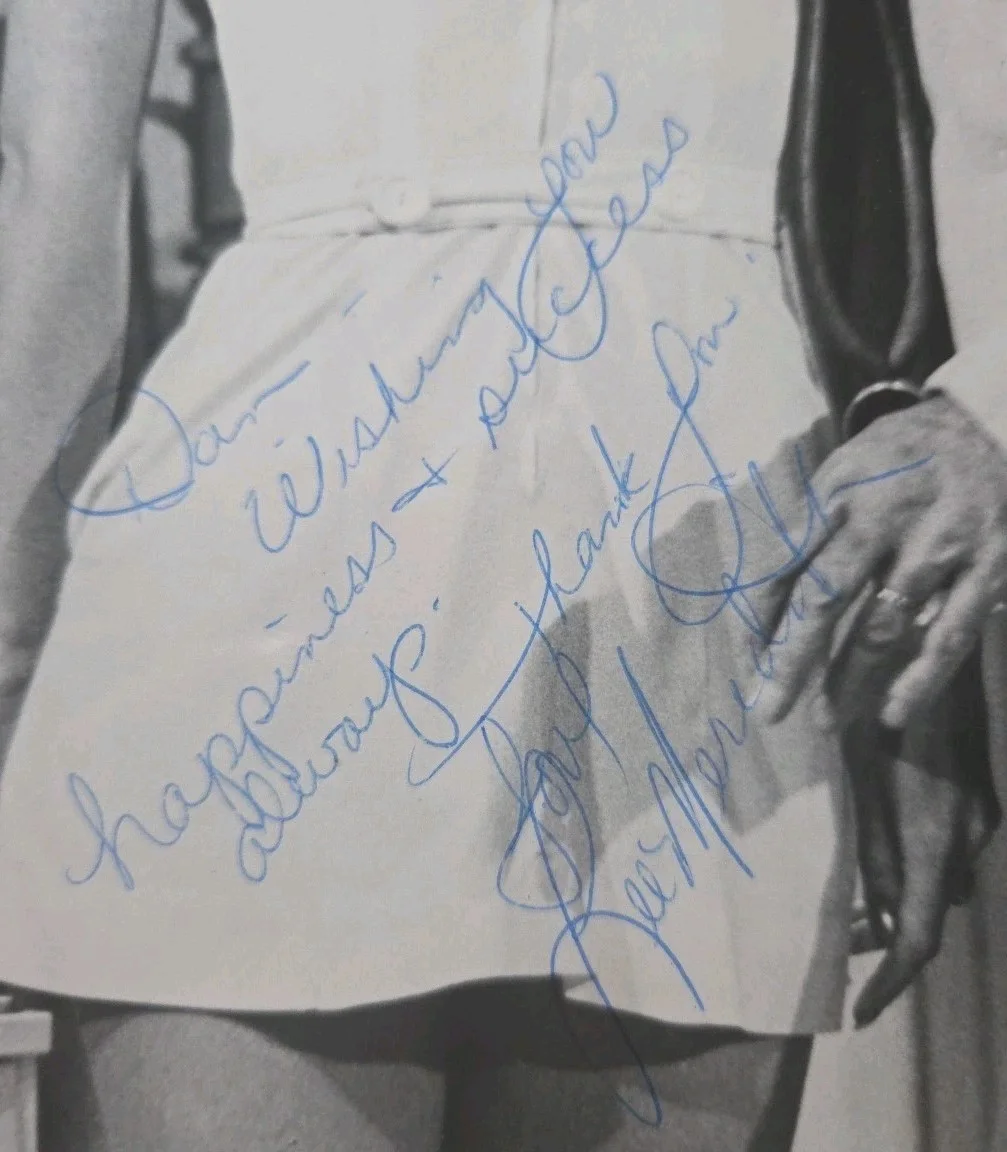 Dan –
Wishing you
happiness + success
always. thank
Love
Lee Meredith